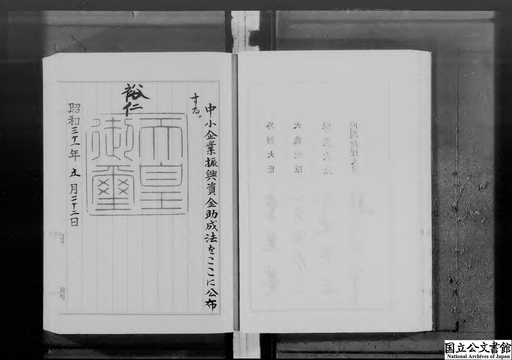 中小企業振興資金助成法をここに公布
する。
裕仁
天皇
御璽
昭和三十一年五月二十二日
国立公文書館
National Archives of Japan